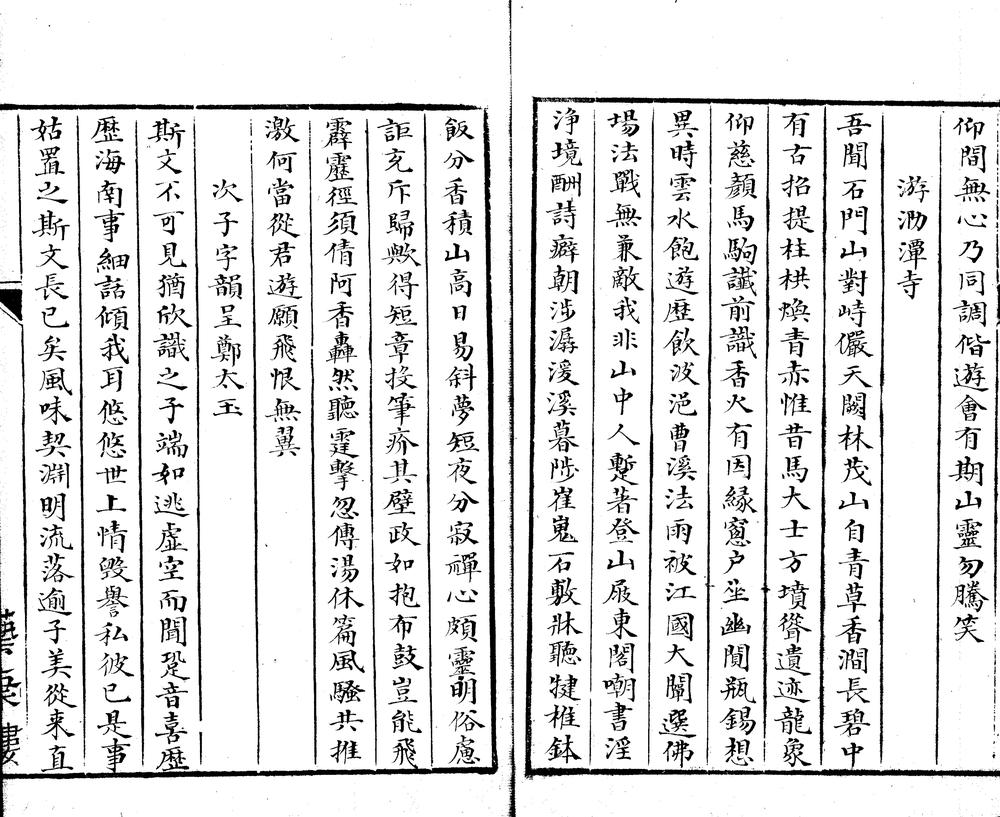 仰間無心乃同調偕遊會有期山靈勿騰笑
游泐潭寺
吾聞石門山對峙儼天闕林茂山自青草香澗長碧中
有古招提柱栱煥青赤惟昔馬大士方墳聳遺迹龍象
仰慈顔馬駒讖前識香火有因縁窻户坐幽閴瓶錫想
異時雲水飽遊歷飲波浥曹溪法雨被江國大闡選佛
場法戰無兼敵我非山中人蹔著登山屐東閣嘲書淫
浄境酬詩癖朝涉潺湲溪暮陟崔嵬石敷牀聽犍椎鉢
飯分香積山高日易斜夢短夜分寂禪心頗靈明俗慮
詎充斥歸歟得短章投筆疥其壁政如抱布鼓豈能飛
霹靂徑須倩阿香轟然聽霆擊忽傳湯休篇風騷共推
激何當從君遊願飛恨無翼
次子字韻呈鄭太玉
斯文不可見猶欣識之子端如逃虚空而聞跫音喜歷
歷海南事細話傾我耳悠悠世上情毁譽私彼已是事
姑置之斯文長已矣風味契淵明流落逾子美從来直